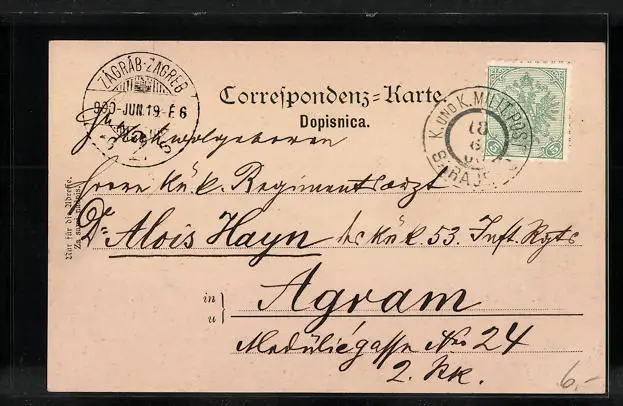 ZÁGRÁB-ZAGREB
900-JUN.19-É.6
Correspondenz=Karte.
Dopisnica.
K. UND K. MILIT. POST
18
6
SARAJ
5 5
Hochwolgeboren
Herrn K.u.k. Regimentsarzt
Dr. Alois Hayn des K.u.k. 53. Inft. Rgts
in
u
Agram
Meduličgasse No 24
2. Stk.
Nur für die Adresse.
Za samu
6.-